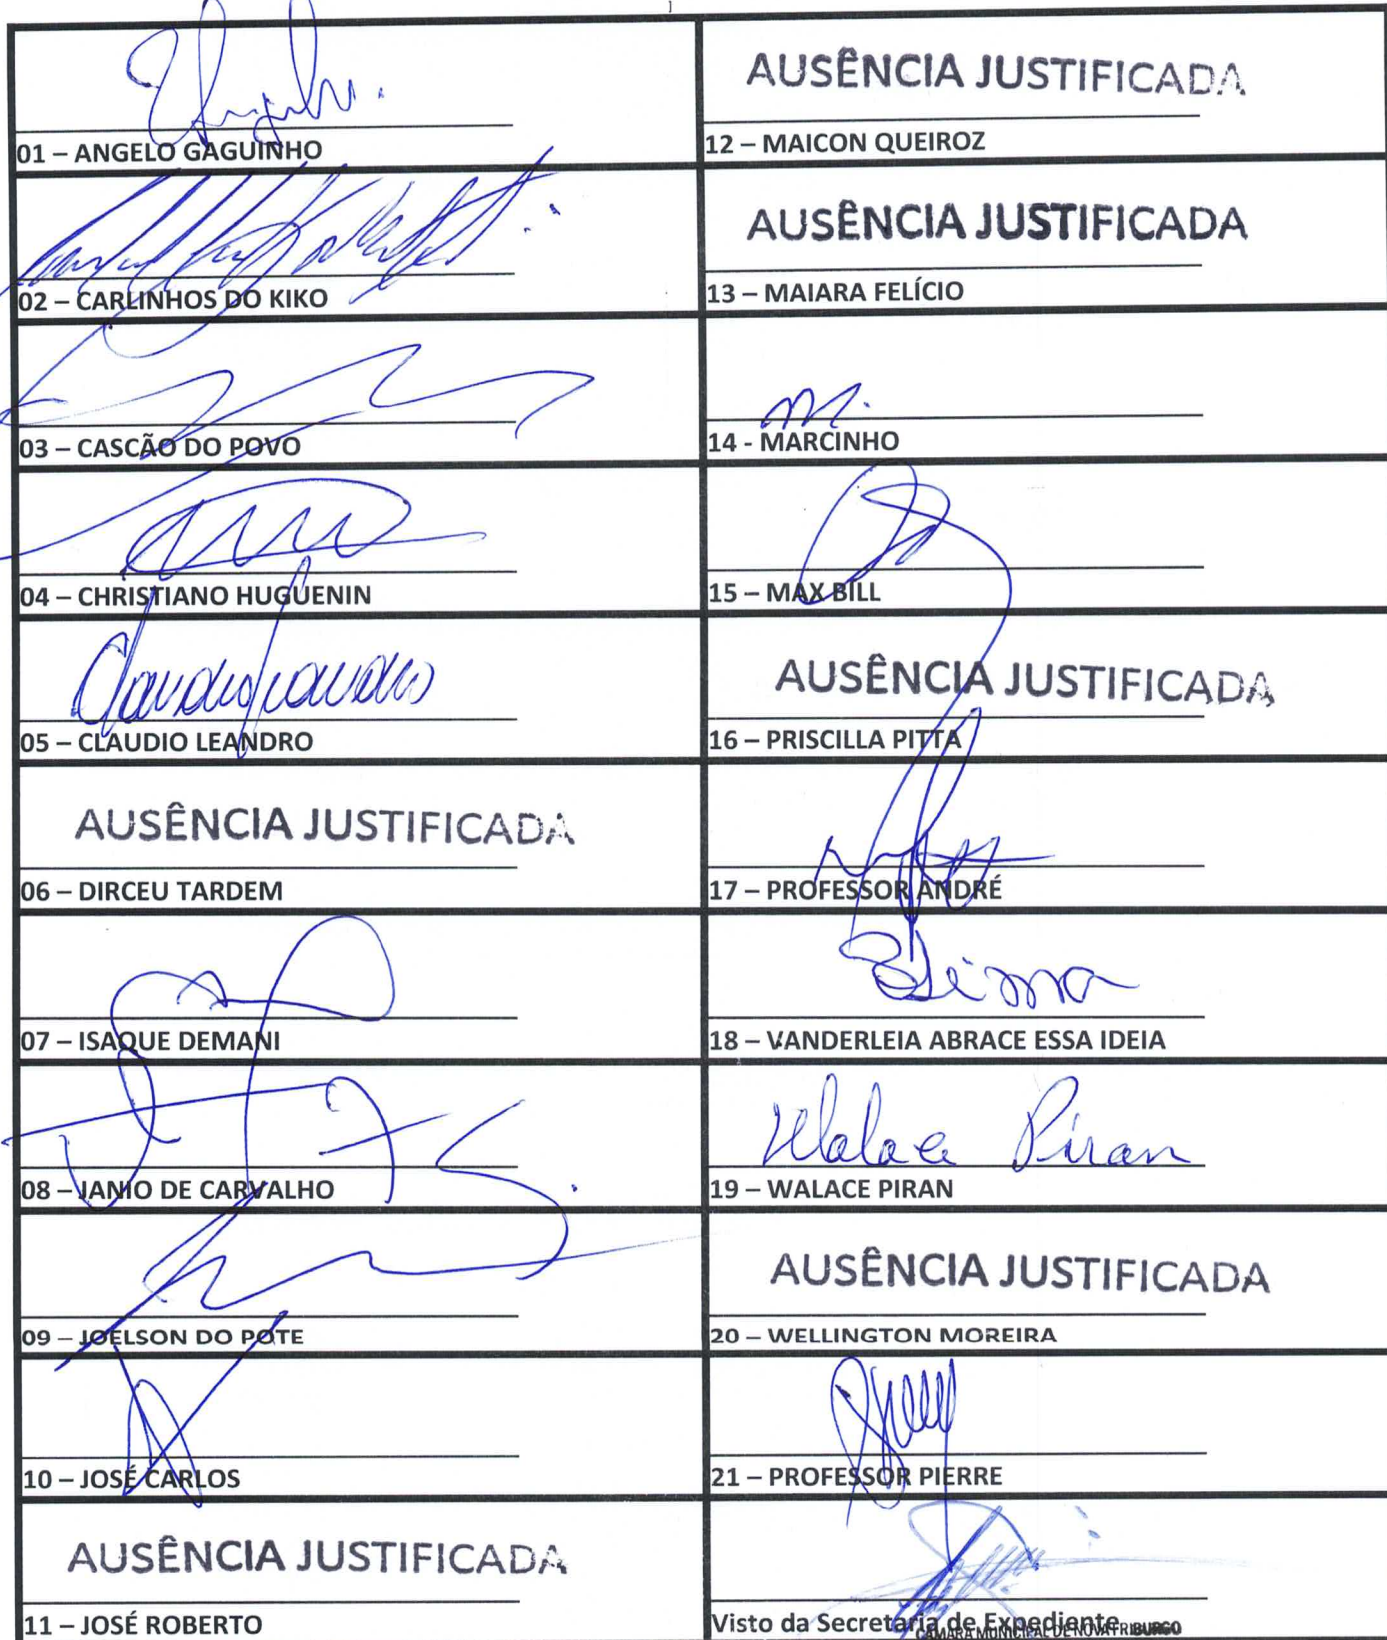 01 – ANGELO GAGUINHO
02 – CARLINHOS DO KIKO
03 – CASCÃO DO POVO
04 – CHRISTIANO HUGUENIN
Claudio Leandro
05 – CLAUDIO LEANDRO
AUSÊNCIA JUSTIFICADA
06 – DIRCEU TARDEM
07 – ISAQUE DEMANI
08 – JANIO DE CARVALHO
09 – JOELSON DO POTE
10 – JOSÉ CARLOS
AUSÊNCIA JUSTIFICADA
11 – JOSÉ ROBERTO
AUSÊNCIA JUSTIFICADA
12 – MAICON QUEIROZ
AUSÊNCIA JUSTIFICADA
13 – MAIARA FELÍCIO
M.
14 - MARCINHO
15 – MAX BILL
AUSÊNCIA JUSTIFICADA
16 – PRISCILLA PITTA
17 – PROFESSOR ANDRÉ
18 – VANDERLEIA ABRACE ESSA IDEIA
Walace Piran
19 – WALACE PIRAN
AUSÊNCIA JUSTIFICADA
20 – WELLINGTON MOREIRA
21 – PROFESSOR PIERRE
Visto da Secretaria de Expediente
CÂMARA MUNICIPAL DE NOVA FRIBURGO